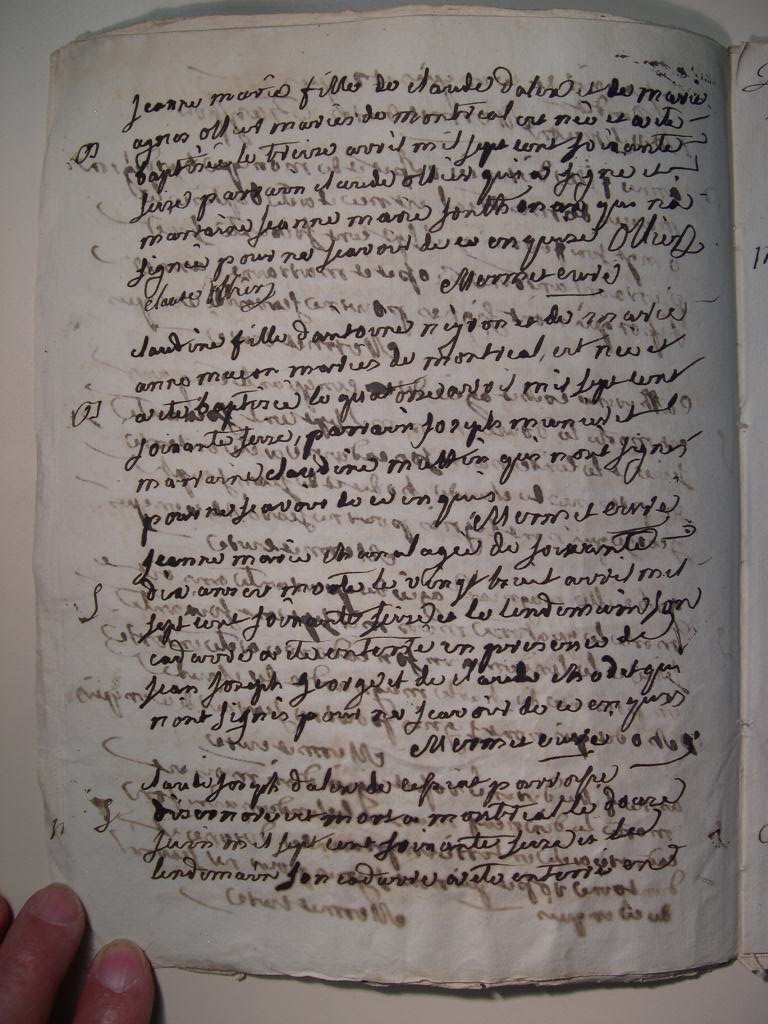 jeanne marie fille de claude dalin et de marie
agnes ollier mariés de montreal est née et a eté
B baptisée le treize avril mil sept cent soixante
seize parrain claude ollier qui a signe et
marraine jeanne marie qui n'a
signée pour ne scavoir de ce enquise Ollier
claude ollier Mermet curé
claudine fille dantoine neyron et de marie
anne maçon mariés de montreal, est née et
B a eté baptisée le quatorze avril mil sept cent
soixante seize, parrain joseph munier et
marraine claudine mettin qui n'ont signés
pour ne scavoir de ce enquis
Mermet curé
jeanne marie chanal agée de soixante
dix ans est morte le vingt huit avril mil
S sept cent soixante seize et le lendemain son
cadavre a eté enterré en presence de
jean joseph george et de claude chodet qui
n'ont signés pour ne scavoir de ce enquis
Mermet curé
claude joseph dalin de parroisse
S est mort a montreal le douze
juin mil sept cent soixante seize et le
lendemain son cadavre a eté enterré